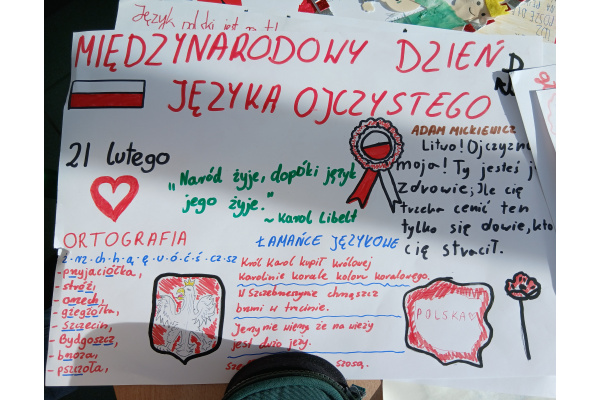 Język polski jest
MIĘDZYNARODOWY DZIEŃ
JĘZYKA OJCZYSTEGO
21 lutego
"Naród żyje, dopóki język
jego żyje."
~ Karol Libelt
ADAM MICKIEWICZ
Litwo! Ojczyzno
moja! Ty jesteś j
zdrowie; Ile cię
trzeba cenić ten
tylko się dowie, kto
cię stracił.
ORTOGRAFIA
ż·rz·ch·h·ą·ę·u·ó·ć·ś·cz·sz
- przyjaciółka,
- stróż,
- orzech,
- gżegżółka,
- Szczecin,
- Bydgoszcz,
- brzoza,
- pszczoła,
ŁAMAŃCE JĘZYKOWE
Król Karol kupił królowej
Karolinie korale koloru koralowego.
W Szczebrzeszynie chrząszcz
brzmi w trzcinie.
Jerzy nie wierzy, że na wieży
jest dużo jeży.
szosą.
POLSKA